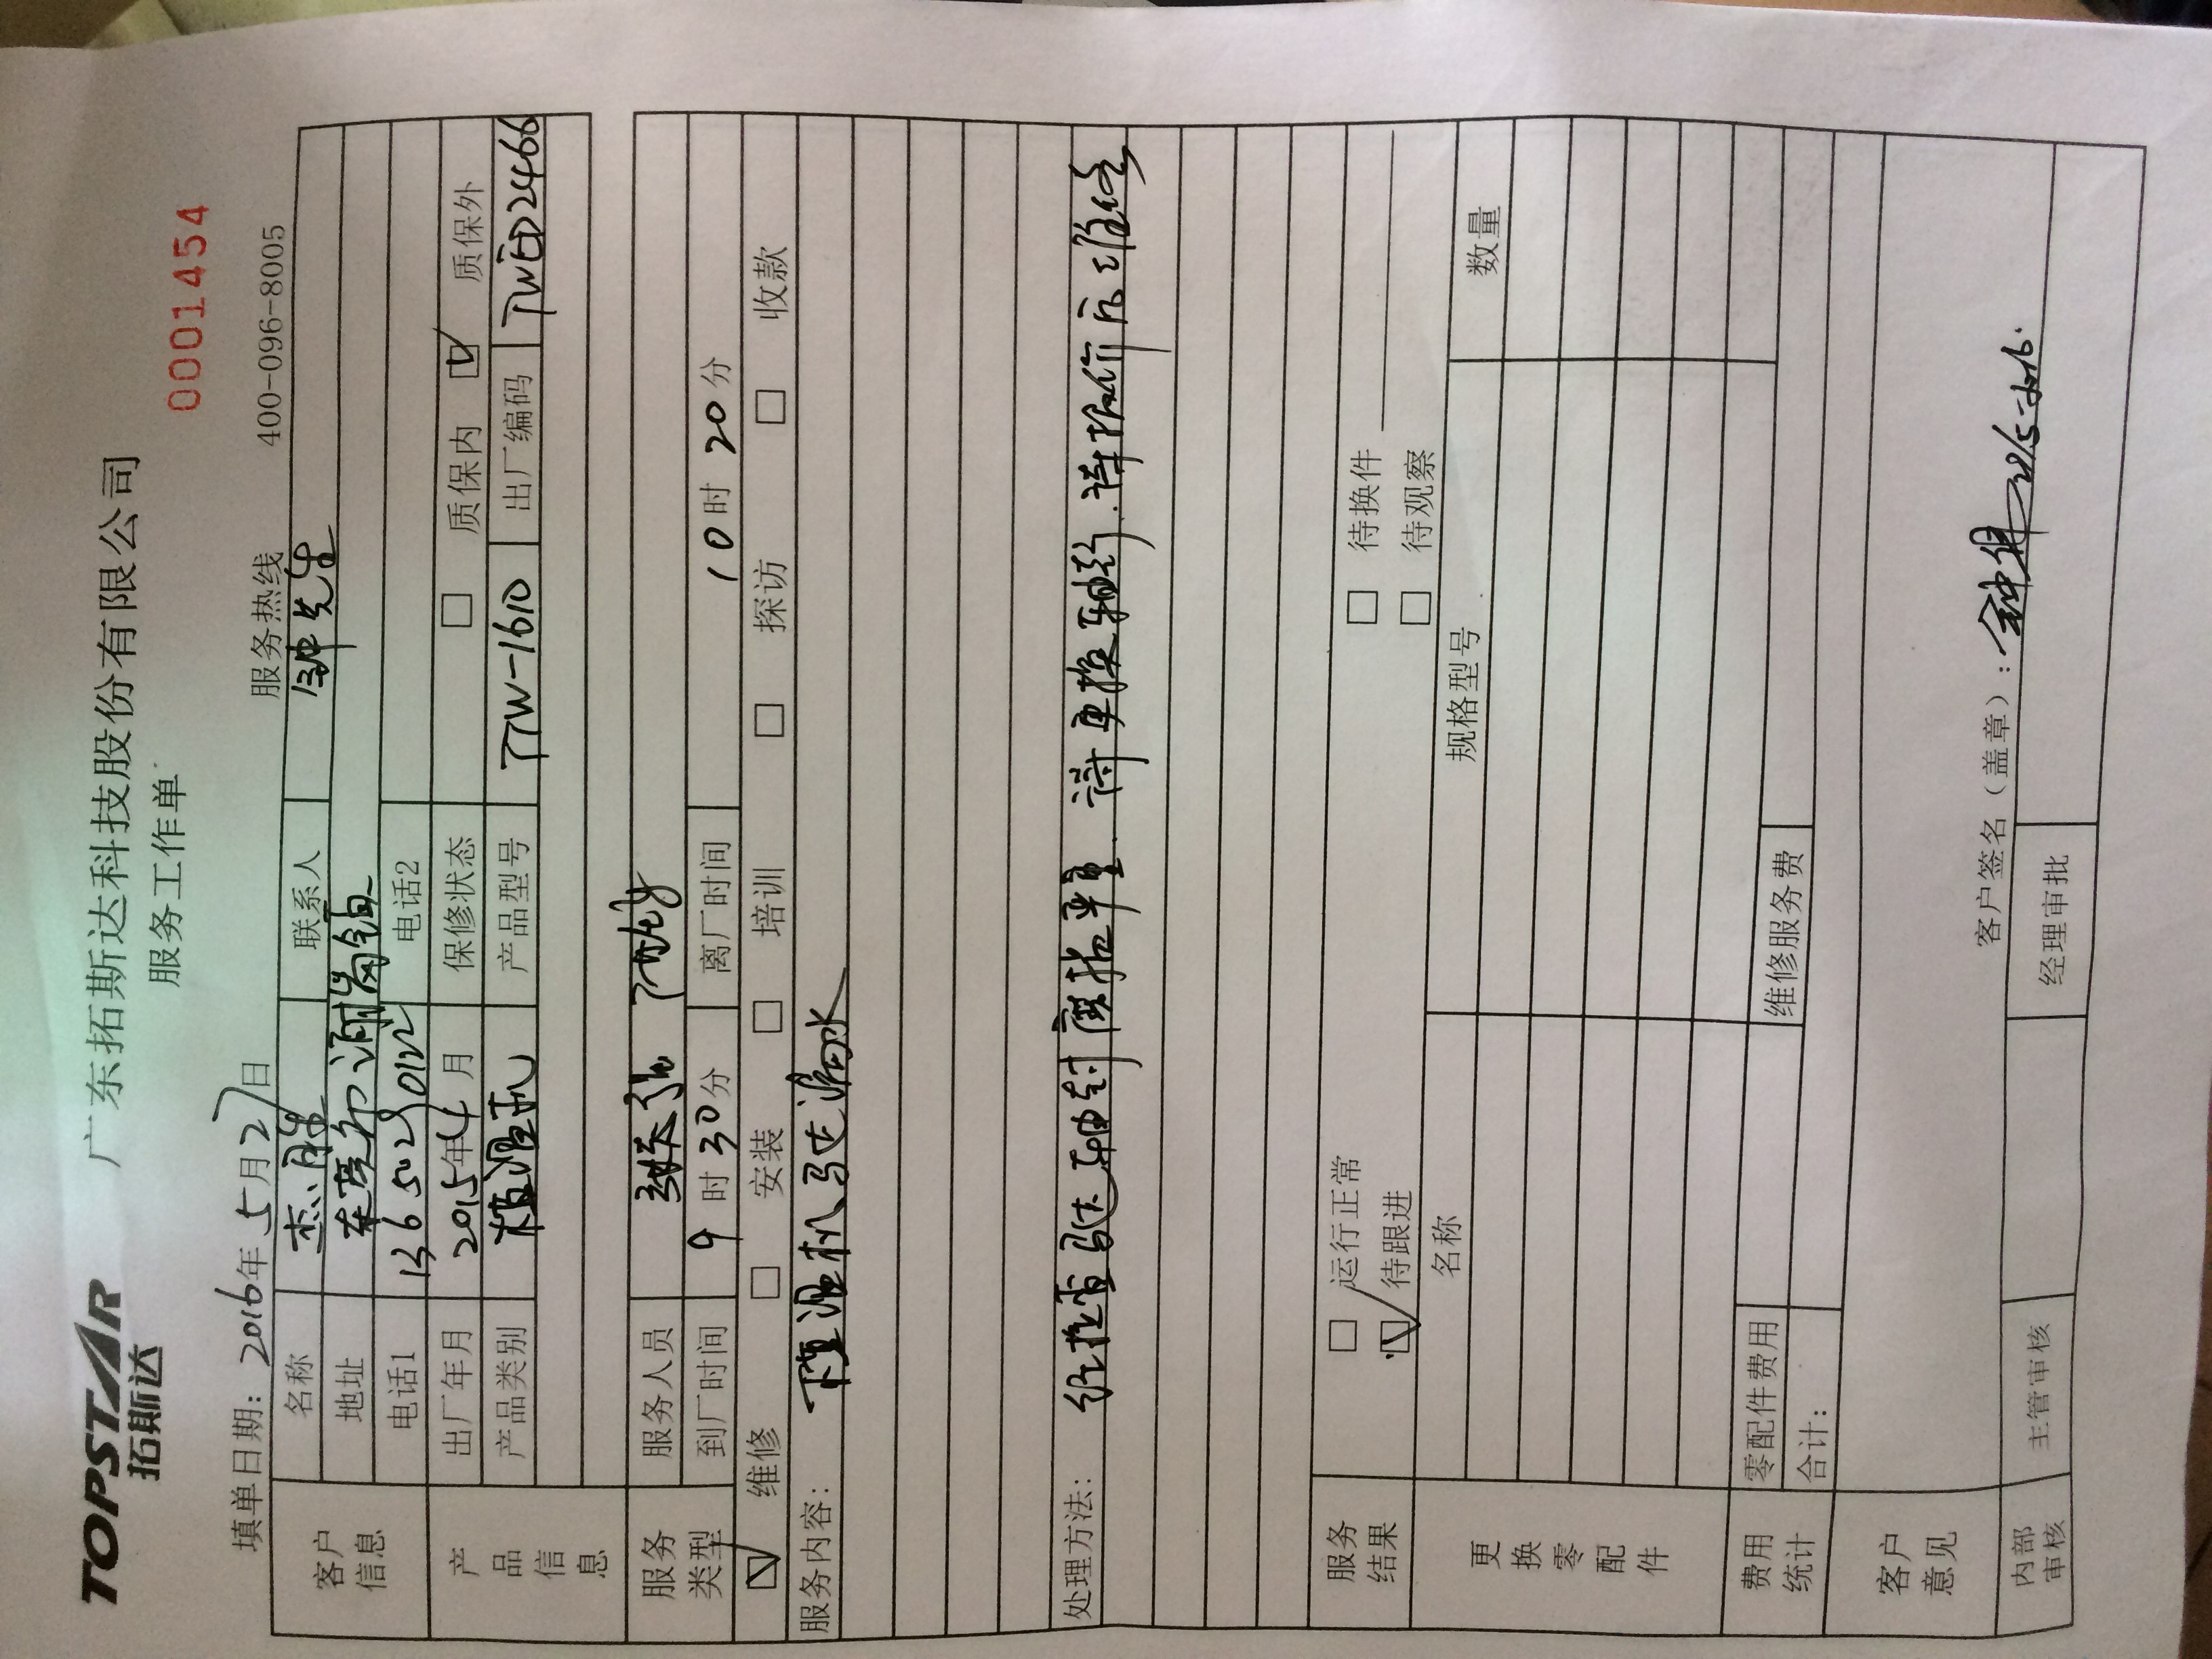 TOPSTAR
拓斯达
广东拓斯达科技股份有限公司
服务工作单
0001454
填单日期: 2016年5月27日
服务热线 400-096-8005
客户信息
名称 杰 联系人 钟先生
地址
电话1 电话2
产品信息
出厂年月 2015年4月 保修状态 □ 质保内 ☑ 质保外
产品类别 模温机 产品型号 TTW-1610 出厂编码
服务类型
服务人员
到厂时间 9时30分 离厂时间 10时20分
☑ 维修 □ 安装 □ 培训 □ 探访 □ 收款
服务内容: 模温机马达漏水
处理方法: 经检查马达轴封磨损严重. 请更换轴封. 请报价后维修
服务结果
□ 运行正常 □ 待换件
☑ 待跟进 □ 待观察
更换零配件
名称 规格型号 数量
费用统计
零配件费用 维修服务费
合计:
客户意见
客户签名（盖章）:
内部审核
主管审核 经理审批